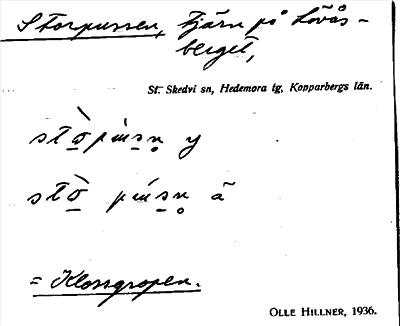 Storpussen, tjärn på Lövås-
berget,
St. Skedvi sn, Hedemora tg, Kopparbergs län.
y
ã
= Klossgropen.
OLLE HILLNER, 1936.